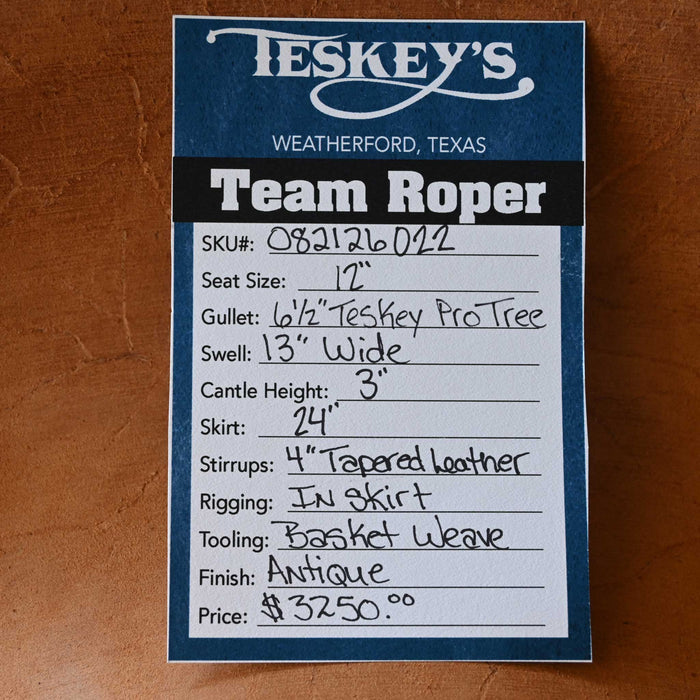 TESKEY'S
WEATHERFORD, TEXAS
Team Roper
SKU#: 082126022
Seat Size: 12"
Gullet: 6 1/2" Teskey Pro Tree
Swell: 13" Wide
Cantle Height: 3"
Skirt: 24"
Stirrups: 4" Tapered Leather
Rigging: In Skirt
Tooling: Basket Weave
Finish: Antique
Price: $3250.00